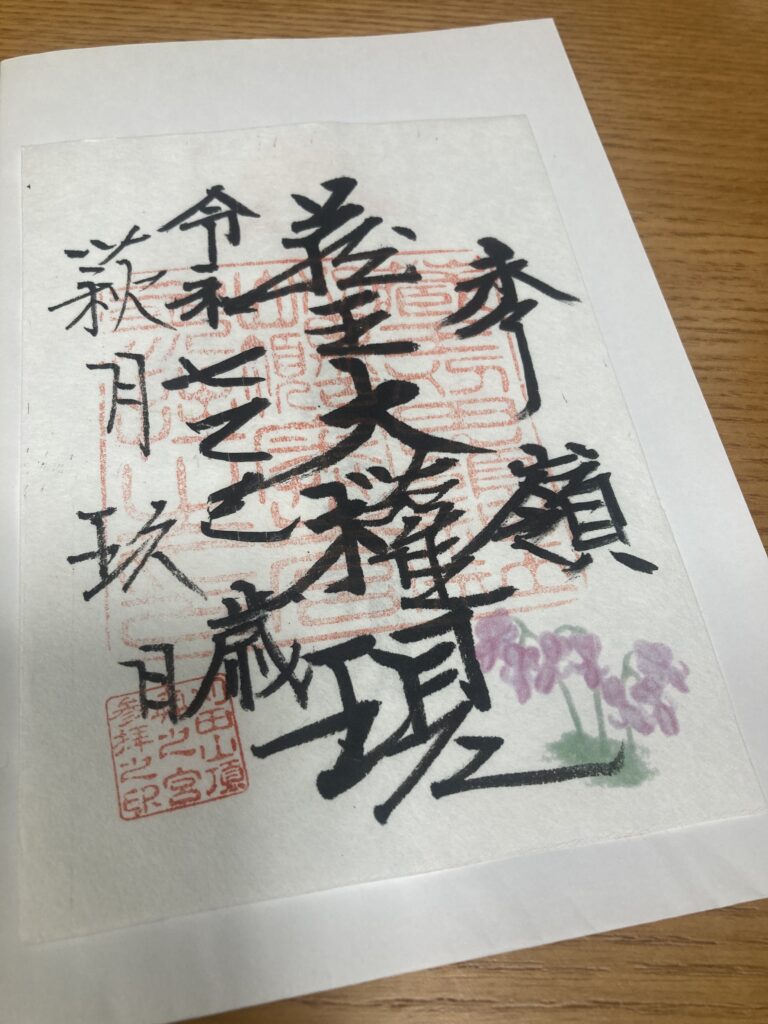 奉嶺
蔵王大權現
令和七乙巳歳
萩月玖日
刈田山頂
奥之宮
参拝之印